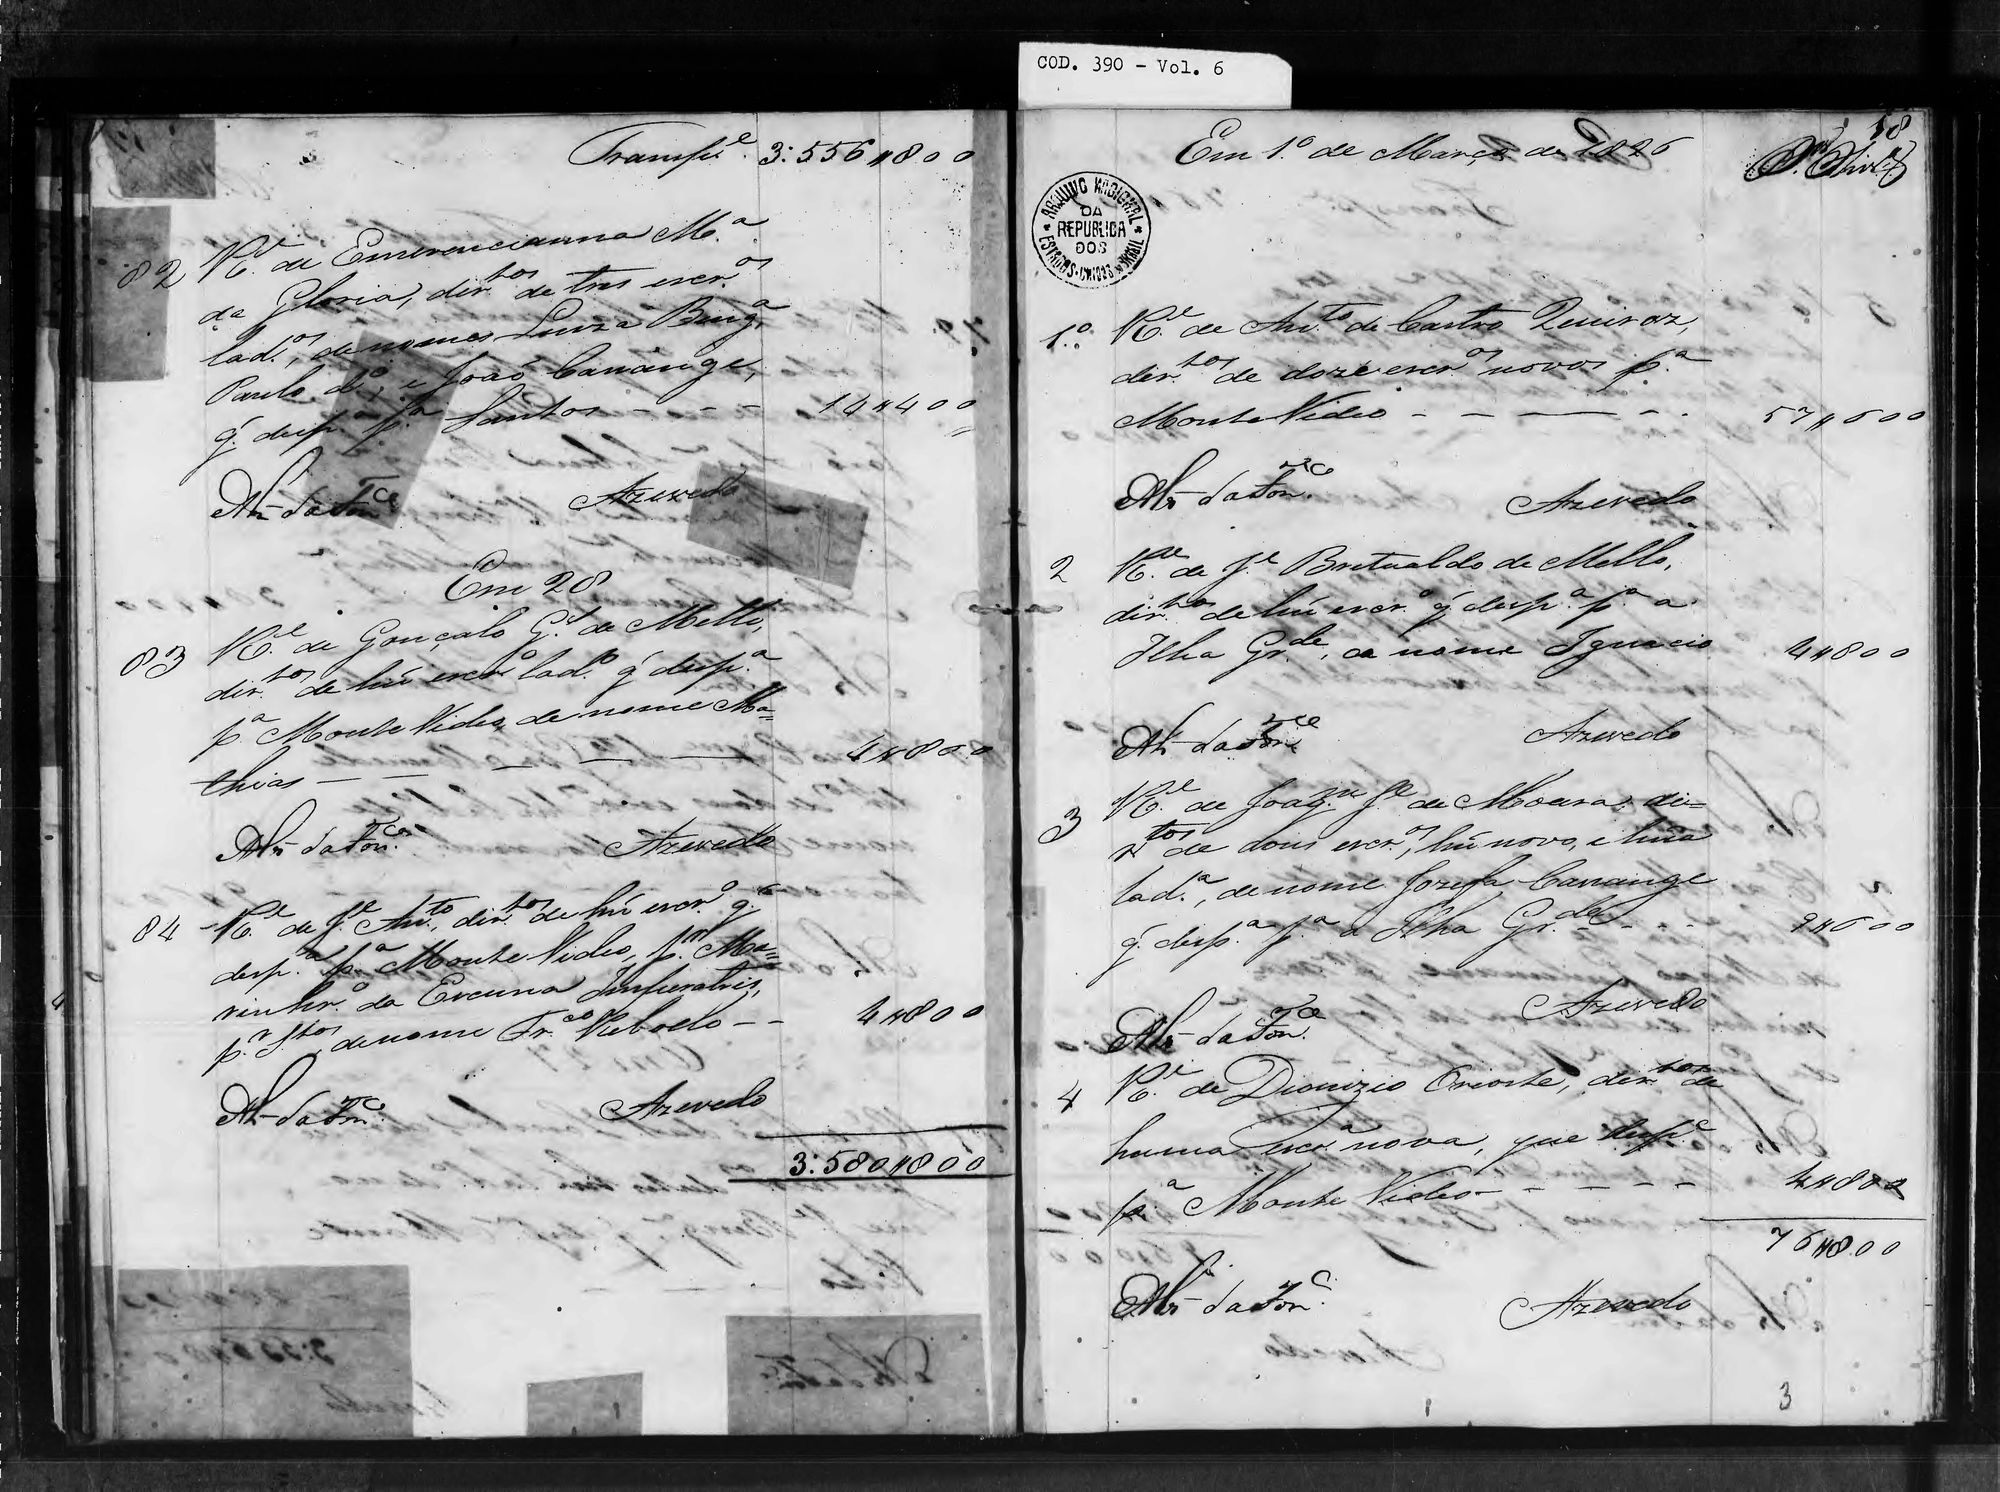 COD. 390 - Vol. 6
Transpe. 3:556#800
82 Re. de Emerenciana Ma.
da Gloria, dirtos. de tres escros.
lados., de nomes Luiza Bengа.
Paulo do., e João Cassange,
q. despa. pa. Santos - - - 14#400
Azevedo
Em 28
83 Re. de Gonçalo Gl. de Mello,
dirtos. de hú escro. lado. q. despa.
pa. Monte Video, de nome Ma=
thias - - - - 4#800
Azevedo
84 Re. de Je. Anto., dirtos. de hú escro. q.
despa. pa. Monte Video, pr. Ma=
rinhro. da Escuna Imperatris,
de nome Frco. Rebolo - - 4#800
Azevedo
3:580#800
58
Em 1o. de Março de 1826
ARQUIVO NACIONAL
DA
REPUBLICA
DOS
ESTADOS-UNIDOS DO BRASIL
1o. Re. de Anto. de Castro Quiroz,
dirtos. de doze escros. novos pa.
Monte Video - - - - 57#600
Azevedo
2 Re. de Je. Bretualdo de Mello,
dirtos. de hú escro. q. despa. pa. a
Ilha Grde., de nome Ignacio 4#800
Azevedo
3 Re. de Joaqm. Je. de Moura, di=
rtos. de dous escros., hú novo, e húa
lada., de nome Jozefa Cassange
q. despa. pa. a Ilha Grde. - - - 9#600
Azevedo
4 Re. de Dionizio Orioste, dirtos. de
huma escra. nova, que despe.
pa. Monte Video - - - - - 4#800
76#800
Azevedo
3